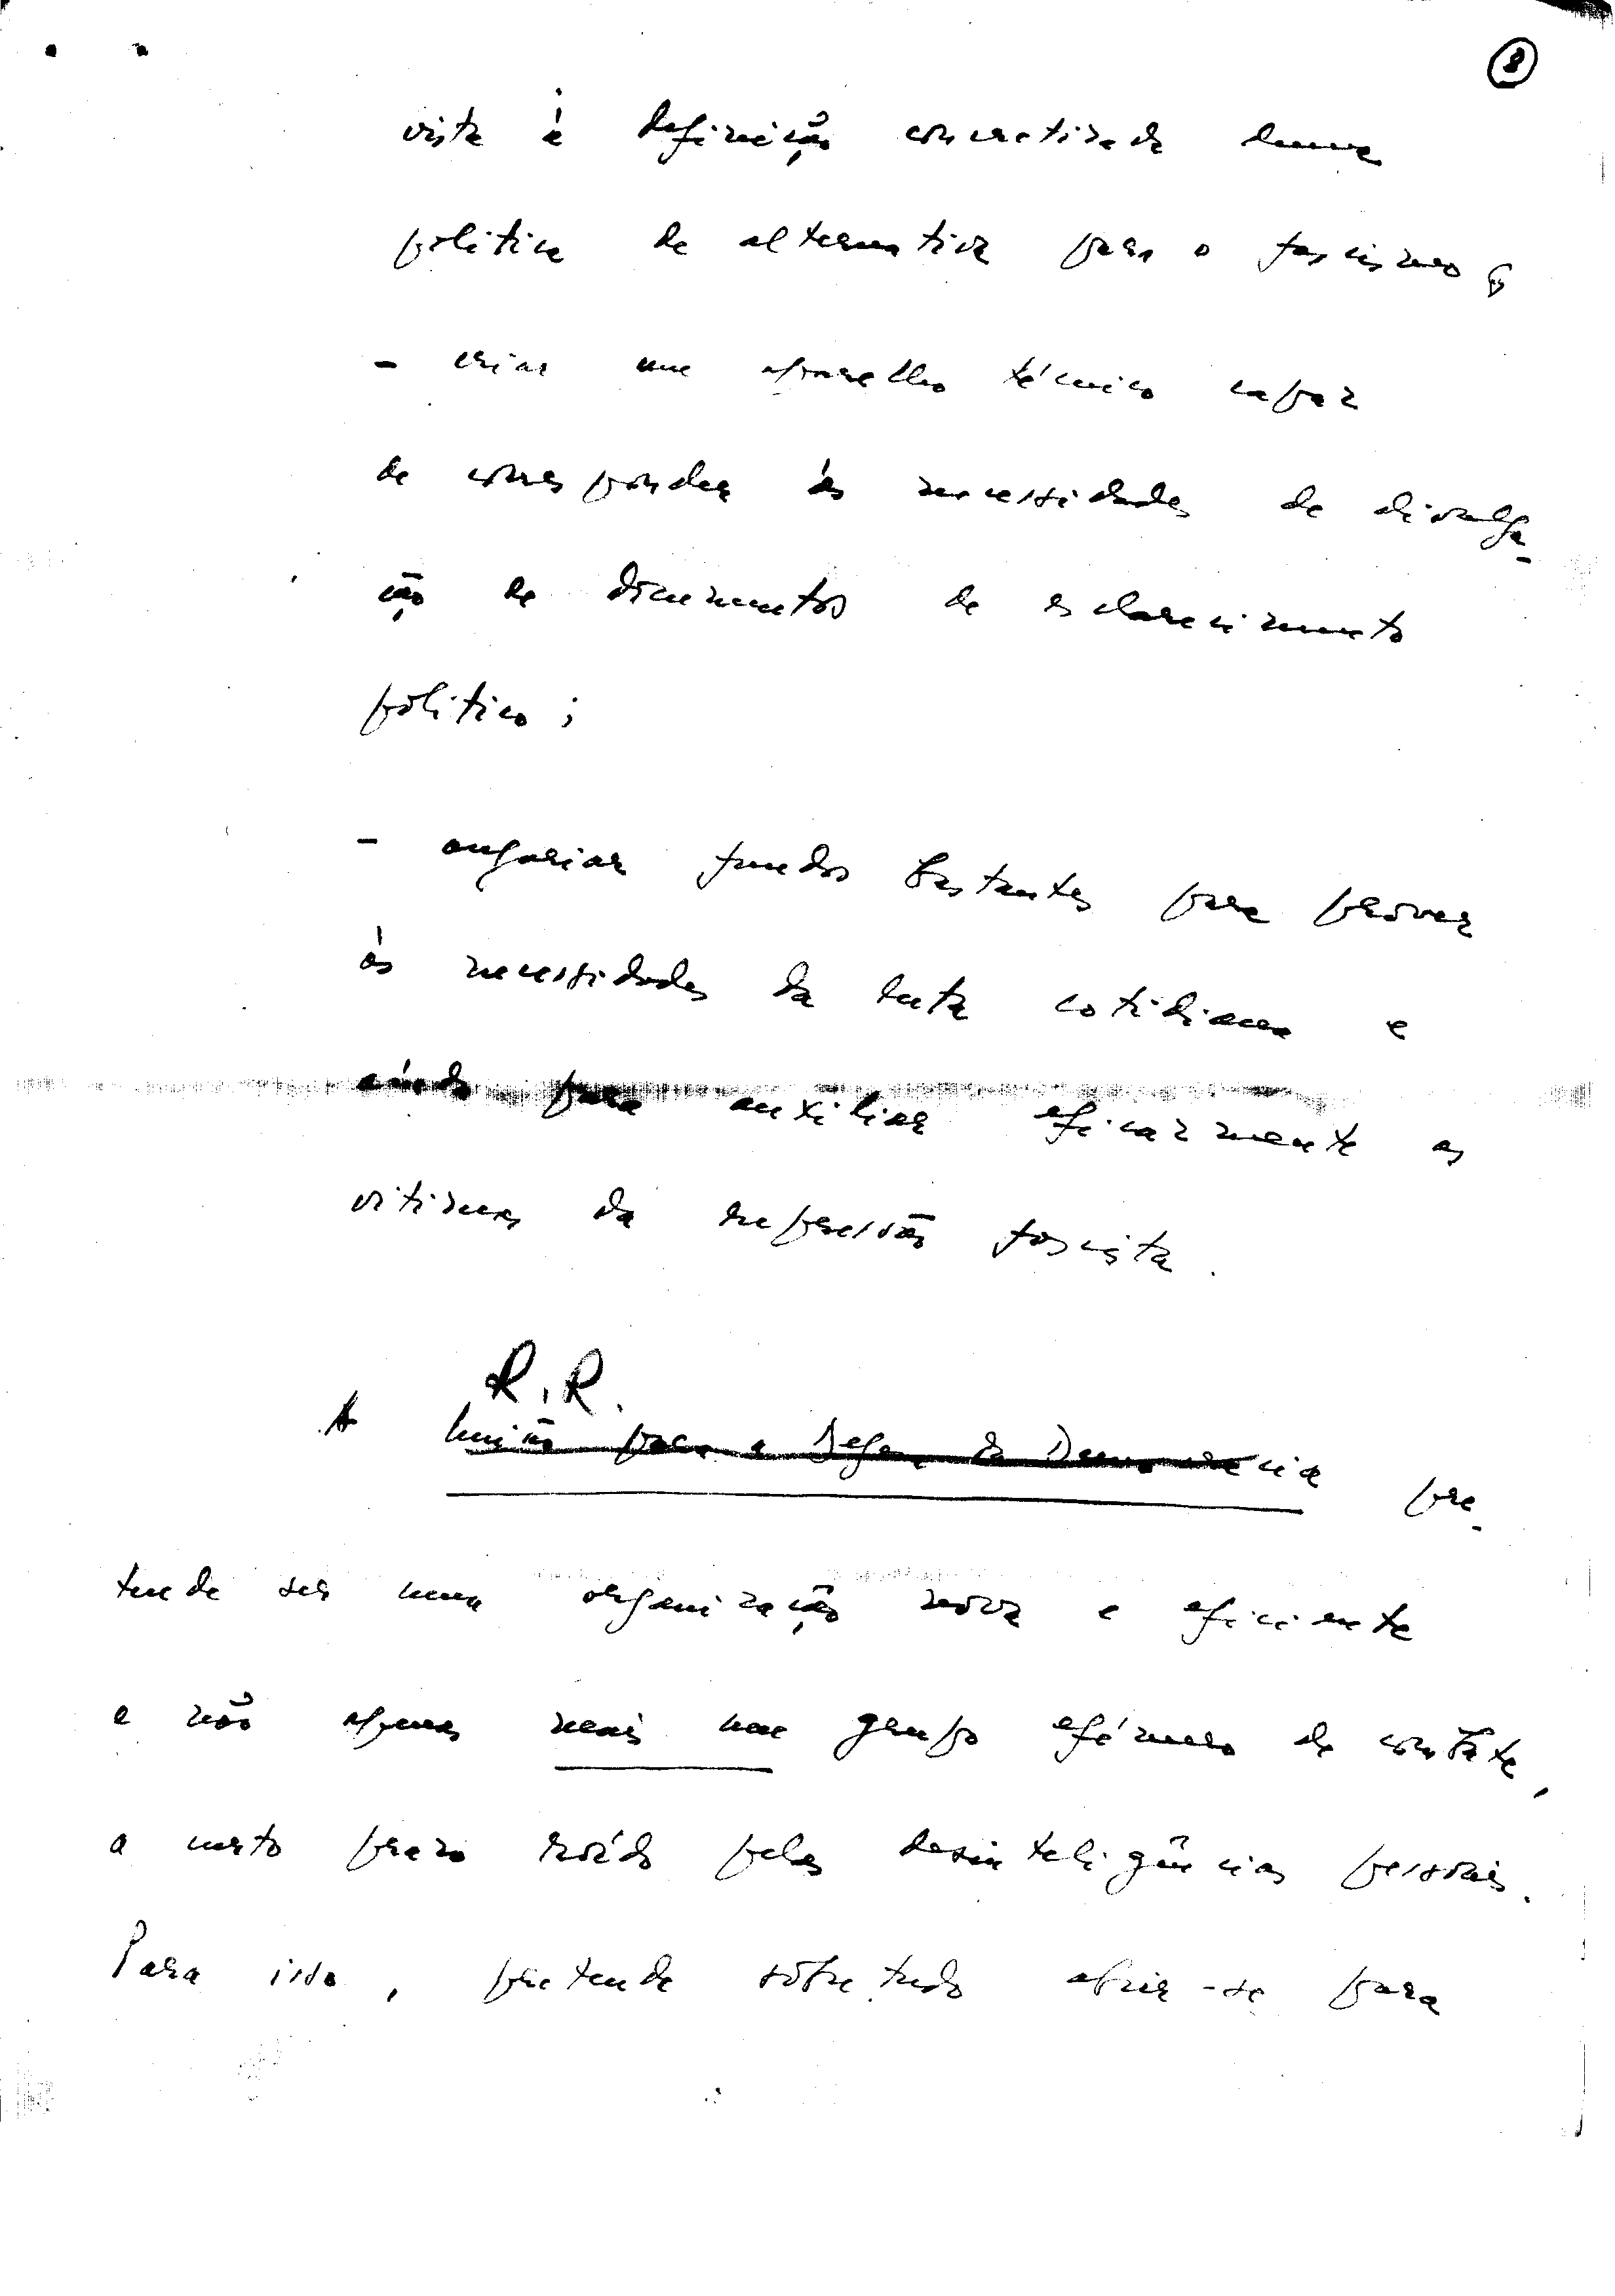 8
vista à definição concretizada duma
política de alternativa para o fascismo;
- criar um aparelho técnico capaz
de corresponder às necessidades de divulga-
ção de documentos de esclarecimento
político;
- angariar fundos bastantes para prover
às necessidades da luta cotidiana e
ainda para auxiliar eficazmente as
vítimas da repressão fascista.
R.R.
A União para a Defesa da Democracia pre-
tende ser uma organização nova e eficiente
e não apenas mais um grupo efémero de combate,
a curto prazo roído pelas desinteligências pessoais.
Para isso, pretende sobretudo abrir-se para